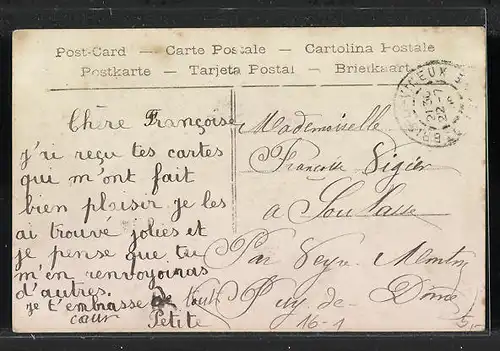 Post-Card — Carte Postale — Cartolina Postale
Postkarte — Tarjeta Postal — Briefkaart
Chère Françoise
j'ri reçu tes cartes
qui m'ont fait
bien plaisir je les
ai trouvé jolies et
je pense que tu
m'en renvoyinas
d'autres.
je t'embrasse de tout
cœur Petite
Mademoiselle
Françoise Vigier
a Soulasse
Par Veyre-Monton
Puy-de-Dôme
16-1